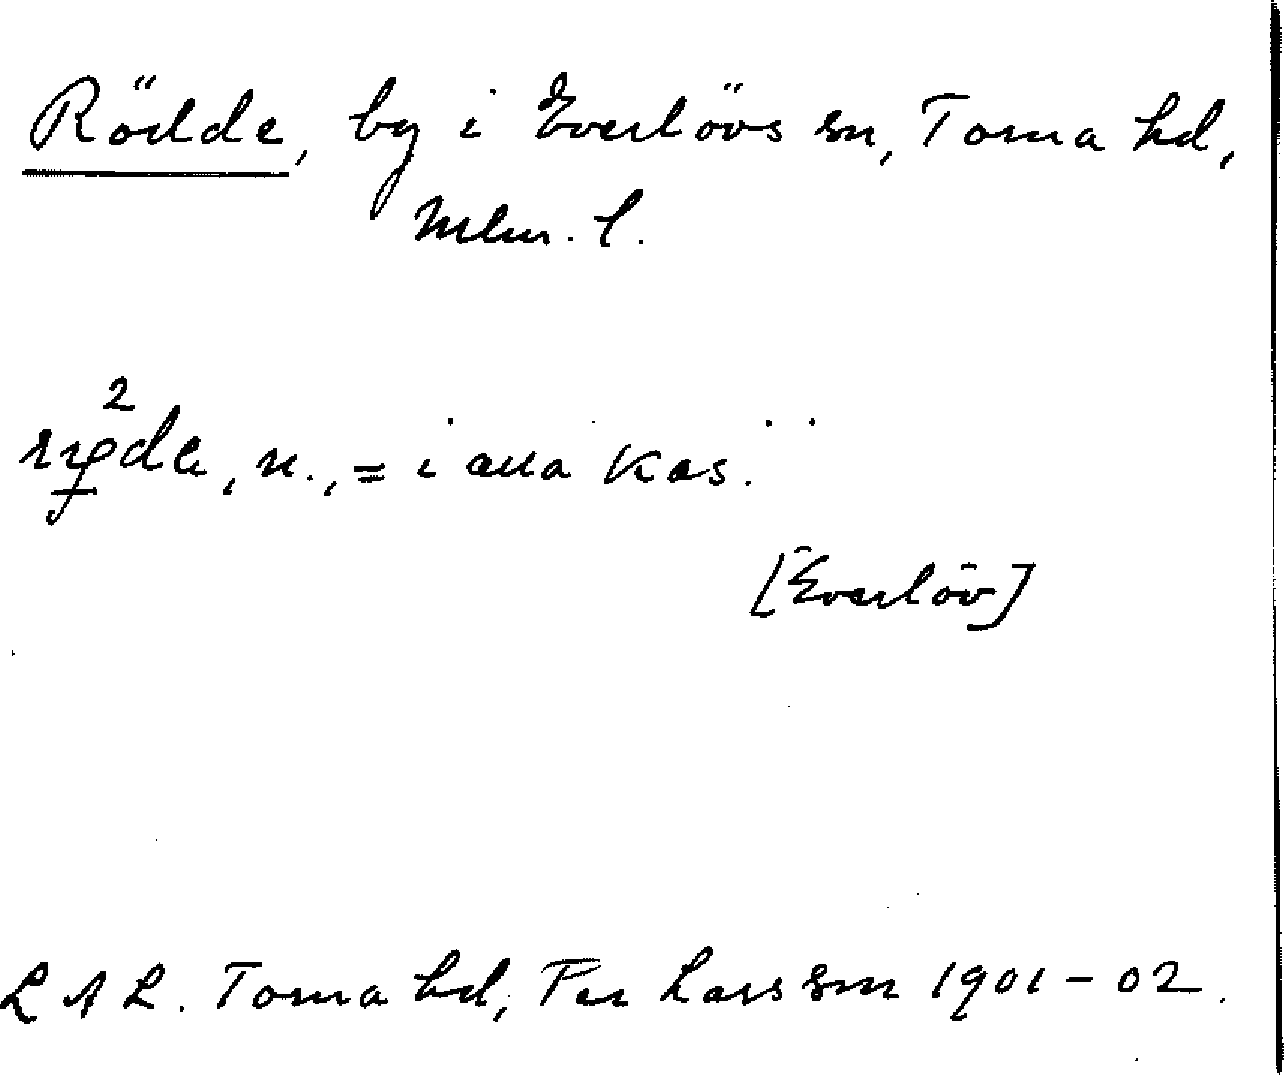 Rödde, by i Everlövs sn, Torna hd,
Mlm. l.
2
, n., = i alla kas.
[Everlöv]
L A L. Torna hd, Per Larsson 1901-02.